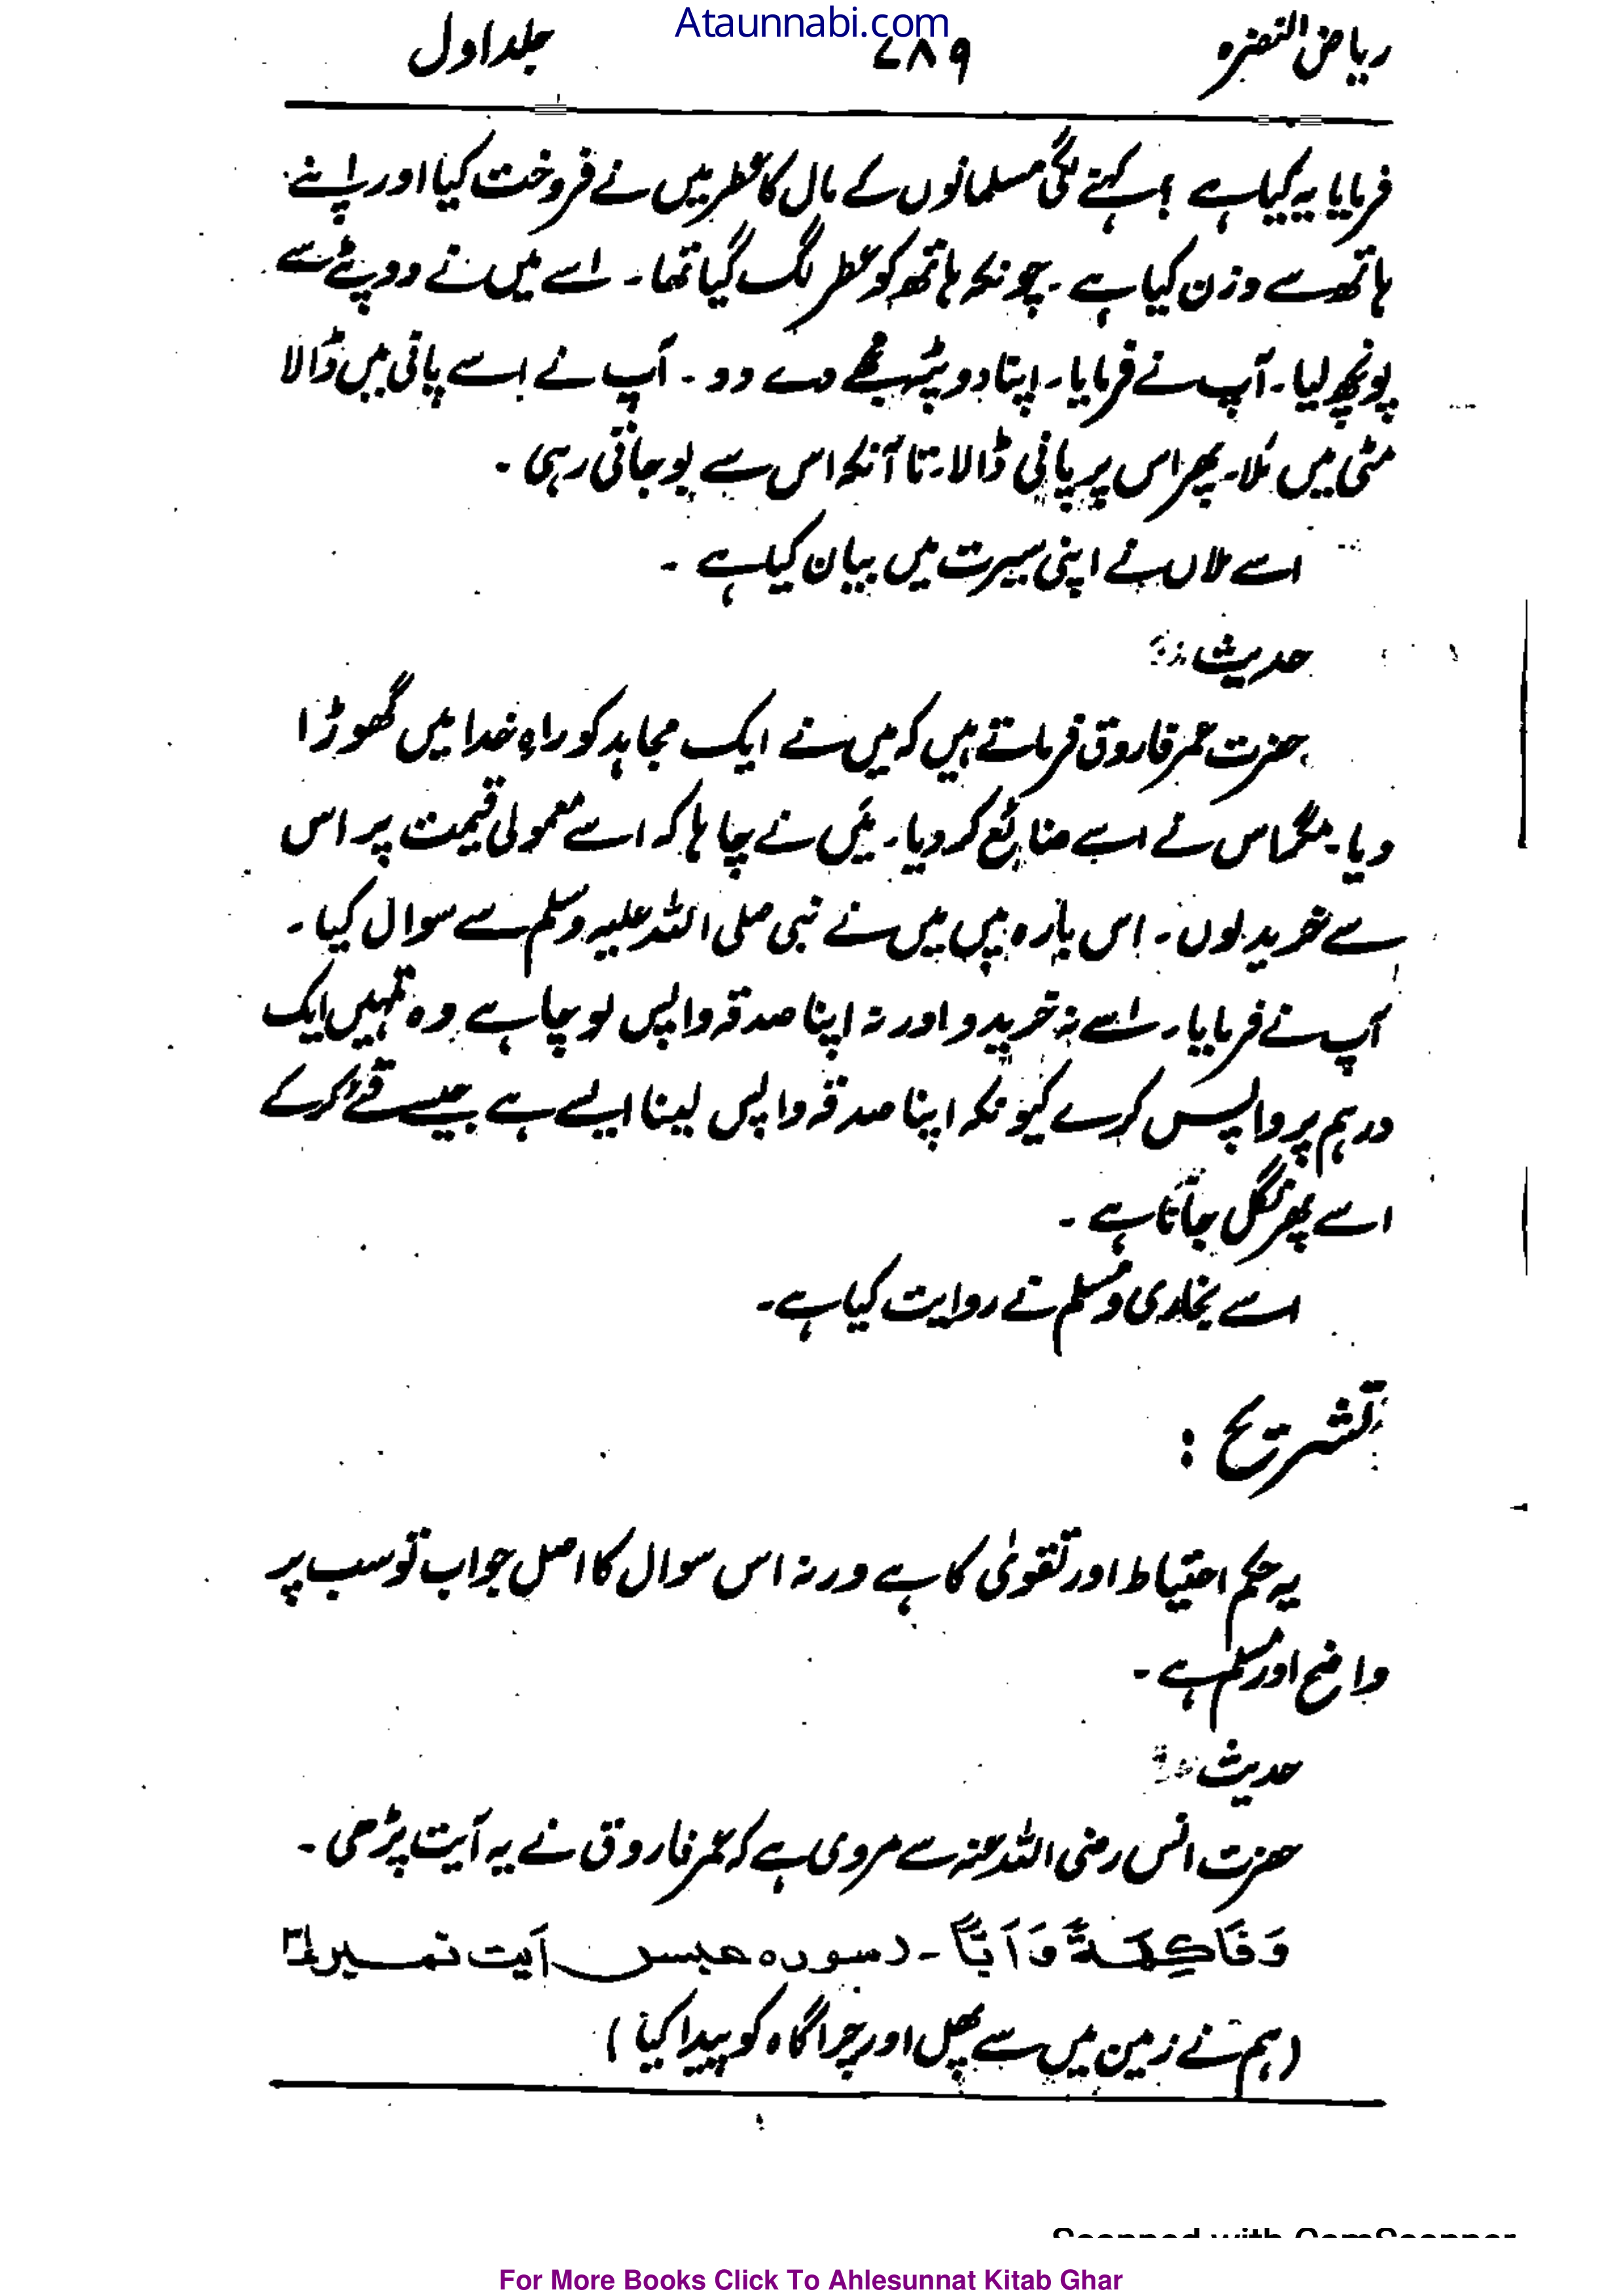 Ataunnabi.com
ریاض النضرہ ۷۸۹ جلد اول
فرمایا یہ کیا ہے ؟ کہنے لگی مسلمانوں کے مال کا عطر میں نے فروخت کیا اور اپنے
ہاتھ سے وزن کیا ہے ۔ چونکہ ہاتھ کو عطر لگ گیا تھا ۔ اسے میں نے دوپٹے سے
پونچھ لیا ۔ آپ نے فرمایا ۔ اپنا دوپٹہ مجھے دے دو ۔ آپ نے اسے پانی میں ڈالا
مٹی میں مَلا ۔ پھر اس پر پانی ڈالا ۔ تا آنکہ اس سے بو جاتی رہی ۔
اسے ملاں نے اپنی سیرت میں بیان کیا ہے ۔
حدیث
حضرت عمر فاروق فرماتے ہیں کہ میں نے ایک مجاہد کو راہِ خدا میں گھوڑا
دیا ۔ مگر اس نے اسے ضائع کر دیا ۔ میَں نے چاہا کہ اسے معمولی قیمت پر اس
سے خرید لوں ۔ اس بارہ میں میں نے نبی صلی اللہ علیہ وسلم سے سوال کیا ۔
آپ نے فرمایا ۔ اسے نہ خریدو اور نہ اپنا صدقہ واپس لو چاہے وہ تمہیں ایک
درہم پر واپس کرے کیونکہ اپنا صدقہ واپس لینا ایسے ہے جیسے قے کرکے
اسے پھر نگل جاتا ہے ۔
اسے بخاری و مسلم نے روایت کیا ہے ۔
تشریح :
یہ حکم احتیاط اور تقویٰ کا ہے ورنہ اس سوال کا اصل جواب تو سب پر
واضح اور مسلم ہے ۔
حدیث
حضرت انس رضی اللہ عنہ سے مروی ہے کہ عمر فاروق نے یہ آیت پڑھی ۔
وَفَاكِهَةً وَأَبًّا ۔ (سورہ عبس آیت نمبر
(ہم نے زمین میں سے پھل اور چراگاہ کو پیدا کیا)
Scanned with CamScanner
For More Books Click To Ahlesunnat Kitab Ghar